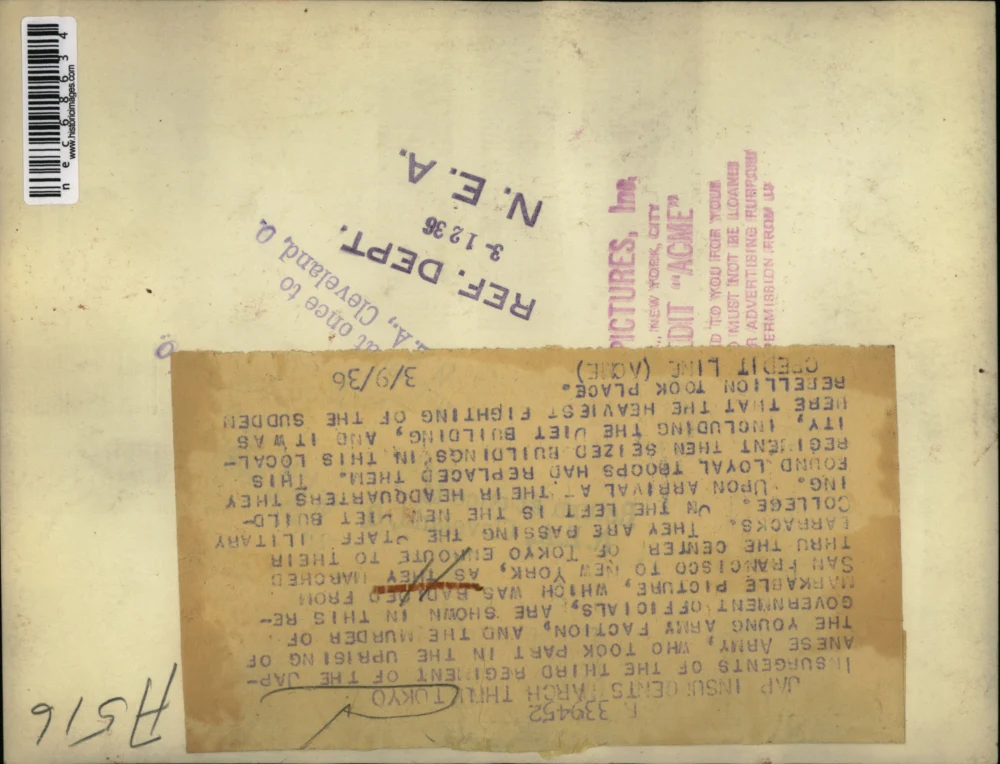 N 339452
JAP INSURGENTS MARCH THRU TOKYO
INSURGENTS OF THE THIRD REGIMENT OF THE JAP-
ANESE ARMY, WHO TOOK PART IN THE UPRISING OF
THE YOUNG ARMY FACTION, AND THE MURDER OF
GOVERNMENT OFFICIALS, ARE SHOWN IN THIS RE-
MARKABLE PICTURE, WHICH WAS RADIOED FROM
SAN FRANCISCO TO NEW YORK, AS THEY MARCHED
THRU THE CENTER OF TOKYO ENROUTE TO THEIR
BARRACKS. THEY ARE PASSING THE STAFF MILITARY
COLLEGE. ON THE LEFT IS THE NEW DIET BUILD-
ING. UPON ARRIVAL AT THEIR HEADQUARTERS THEY
FOUND LOYAL TROOPS HAD REPLACED THEM. THIS
REGIMENT THEN SEIZED BUILDINGS IN THIS LOCAL-
ITY, INCLUDING THE DIET BUILDING, AND IT WAS
HERE THAT THE HEAVIEST FIGHTING OF THE SUDDEN
REBELLION TOOK PLACE.
CREDIT LINE (ACME) 3/9/36
REF. DEPT.
3-12 36
N. E. A.
at once to
A., Cleveland, O.
PICTURES, Inc.
NEW YORK, CITY
DIT "ACME"
D TO YOU FOR YOUR
MUST NOT BE LOANED
ADVERTISING PURPOSES
PERMISSION FROM US
A516
nec68634
www.historicimages.com